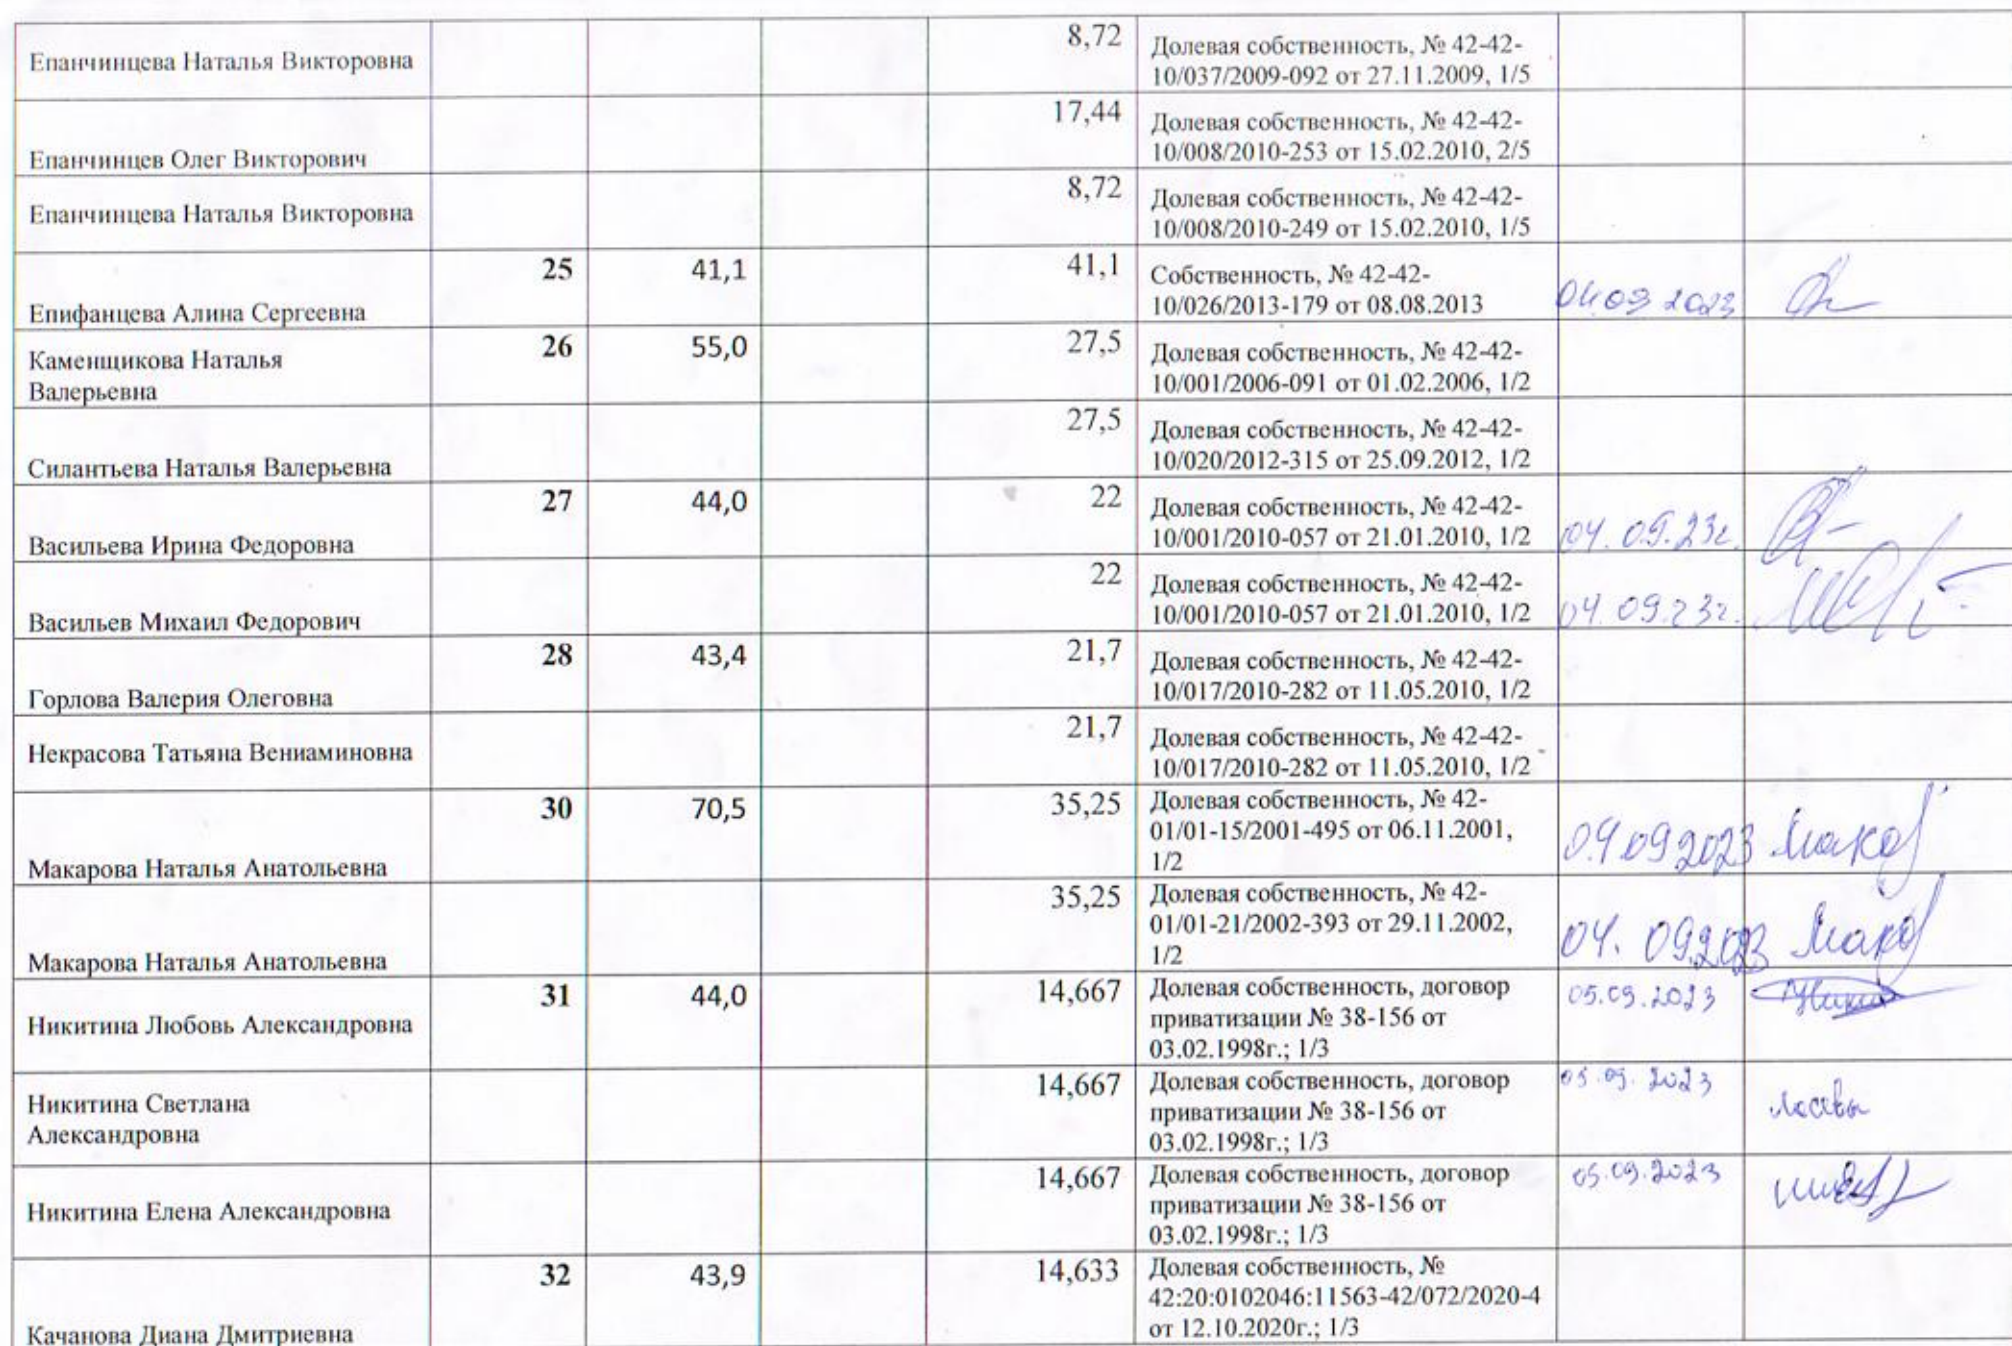 Епанчинцева Наталья Викторовна 8,72 Долевая собственность, № 42-42-
10/037/2009-092 от 27.11.2009, 1/5
Епанчинцев Олег Викторович 17,44 Долевая собственность, № 42-42-
10/008/2010-253 от 15.02.2010, 2/5
Епанчинцева Наталья Викторовна 8,72 Долевая собственность, № 42-42-
10/008/2010-249 от 15.02.2010, 1/5
Епифанцева Алина Сергеевна 25 41,1 41,1 Собственность, № 42-42-
10/026/2013-179 от 08.08.2013 04.09 2023
Каменщикова Наталья 26 55,0 27,5 Долевая собственность, № 42-42-
Валерьевна 10/001/2006-091 от 01.02.2006, 1/2
Силантьева Наталья Валерьевна 27,5 Долевая собственность, № 42-42-
10/020/2012-315 от 25.09.2012, 1/2
Васильева Ирина Федоровна 27 44,0 22 Долевая собственность, № 42-42-
10/001/2010-057 от 21.01.2010, 1/2 04.09.23г.
Васильев Михаил Федорович 22 Долевая собственность, № 42-42-
10/001/2010-057 от 21.01.2010, 1/2 04.09.23г.
Горлова Валерия Олеговна 28 43,4 21,7 Долевая собственность, № 42-42-
10/017/2010-282 от 11.05.2010, 1/2
Некрасова Татьяна Вениаминовна 21,7 Долевая собственность, № 42-42-
10/017/2010-282 от 11.05.2010, 1/2
Макарова Наталья Анатольевна 30 70,5 35,25 Долевая собственность, № 42-
01/01-15/2001-495 от 06.11.2001, 04 09 2023 Мака
1/2
Макарова Наталья Анатольевна 35,25 Долевая собственность, № 42-
01/01-21/2002-393 от 29.11.2002, 04. 09.2023 Мака
1/2
Никитина Любовь Александровна 31 44,0 14,667 Долевая собственность, договор 05.09.2023
приватизации № 38-156 от
03.02.1998г.; 1/3
Никитина Светлана 14,667 Долевая собственность, договор 05.09.2023
Александровна приватизации № 38-156 от
03.02.1998г.; 1/3
Никитина Елена Александровна 14,667 Долевая собственность, договор 05.09.2023
приватизации № 38-156 от
03.02.1998г.; 1/3
Качанова Диана Дмитриевна 32 43,9 14,633 Долевая собственность, №
42:20:0102046:11563-42/072/2020-4
от 12.10.2020г.; 1/3